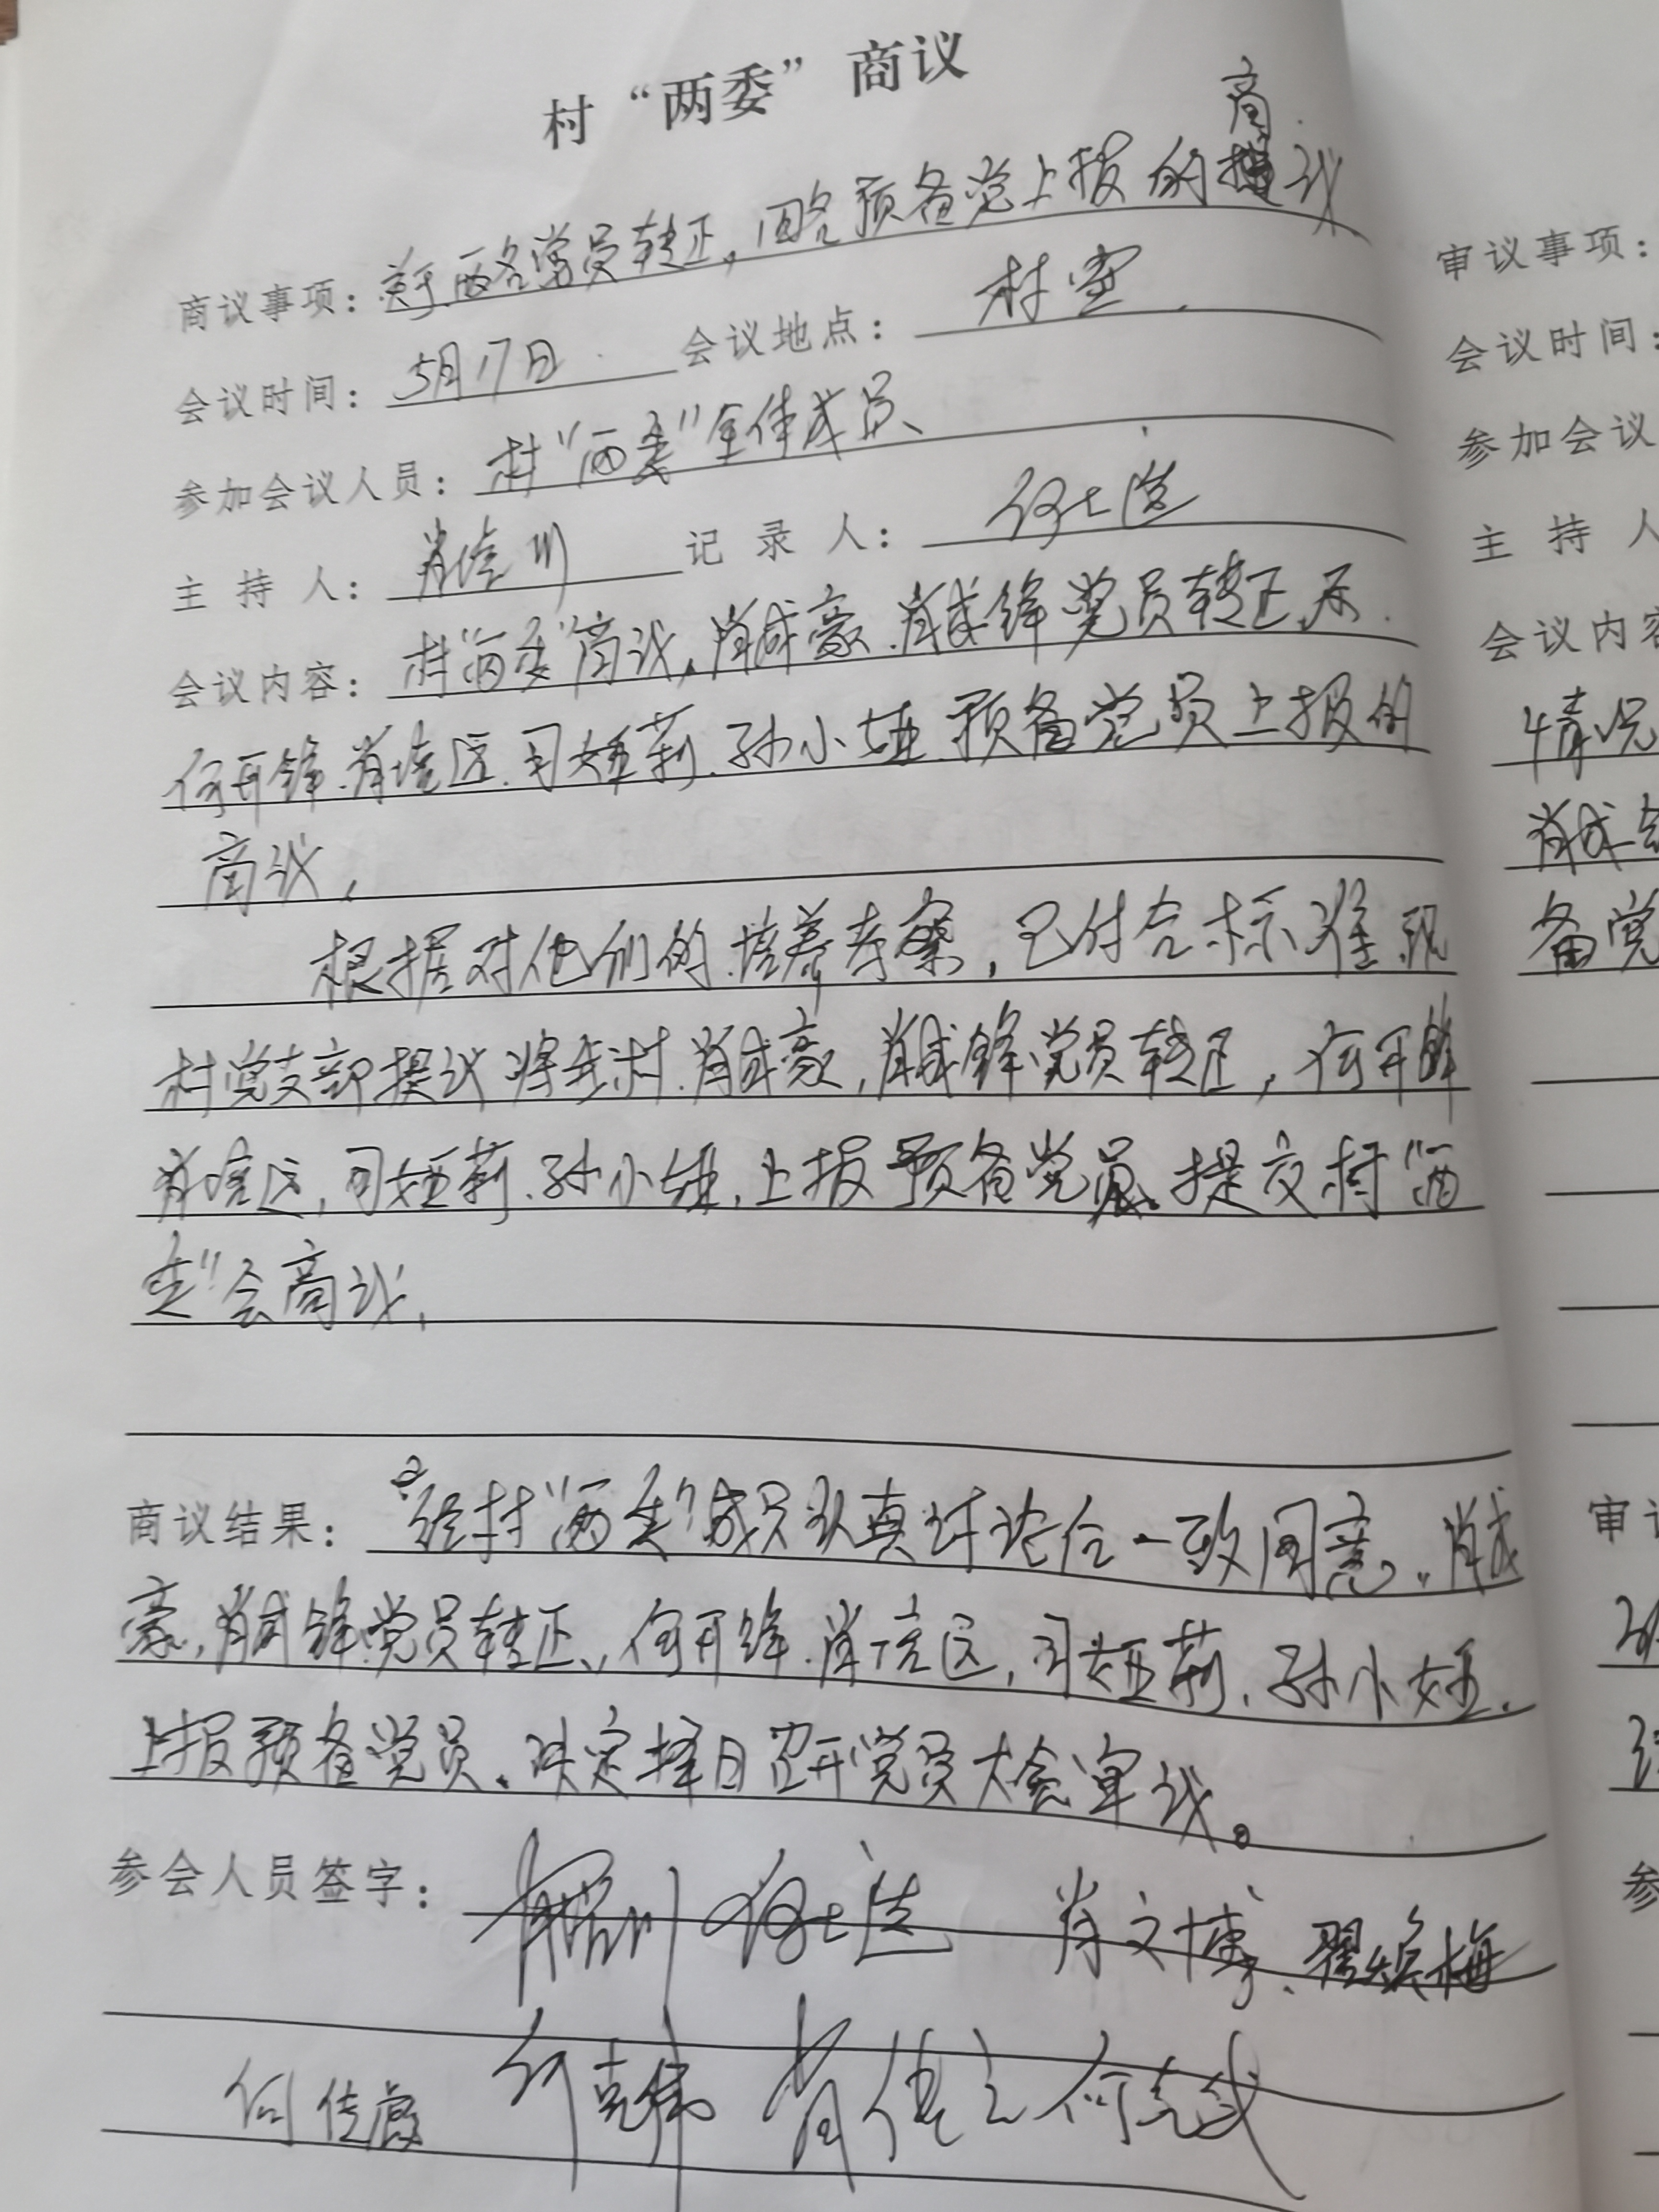 村“两委”商议
商
商议事项：关于两名党员转正，四名预备党上报的议
会议时间：5月17日 会议地点：村室
参加会议人员：村“两委”全体成员、
主持人：肖 川 记录人：何士
会议内容：村“两委”商议，肖成豪、肖成锋党员转正、
何开锋、肖 远、司娅莉、孙小娃、预备党员上报的
商议，
根据对他们的培养考察，已付合标准，现
村党支部提议将我村、肖成豪，肖成锋党员转正，何开锋
肖 远，司娅莉、孙小娃，上报预备党员、提交村“两
委”会商议，
商议结果：经村“两委”成员认真讨论后一致同意，肖成
豪，肖成锋党员转正，何开锋、肖 远，司娅莉，孙小娅，
上报预备党员、决定择日召开党员大会审议。
参会人员签字：川 何士 肖文博、翟焕梅
何传 何克伟 肖 何克成
审议事项：
会议时间：
参加会议
主持人
会议内容
情况
肖成
备党
审议
参